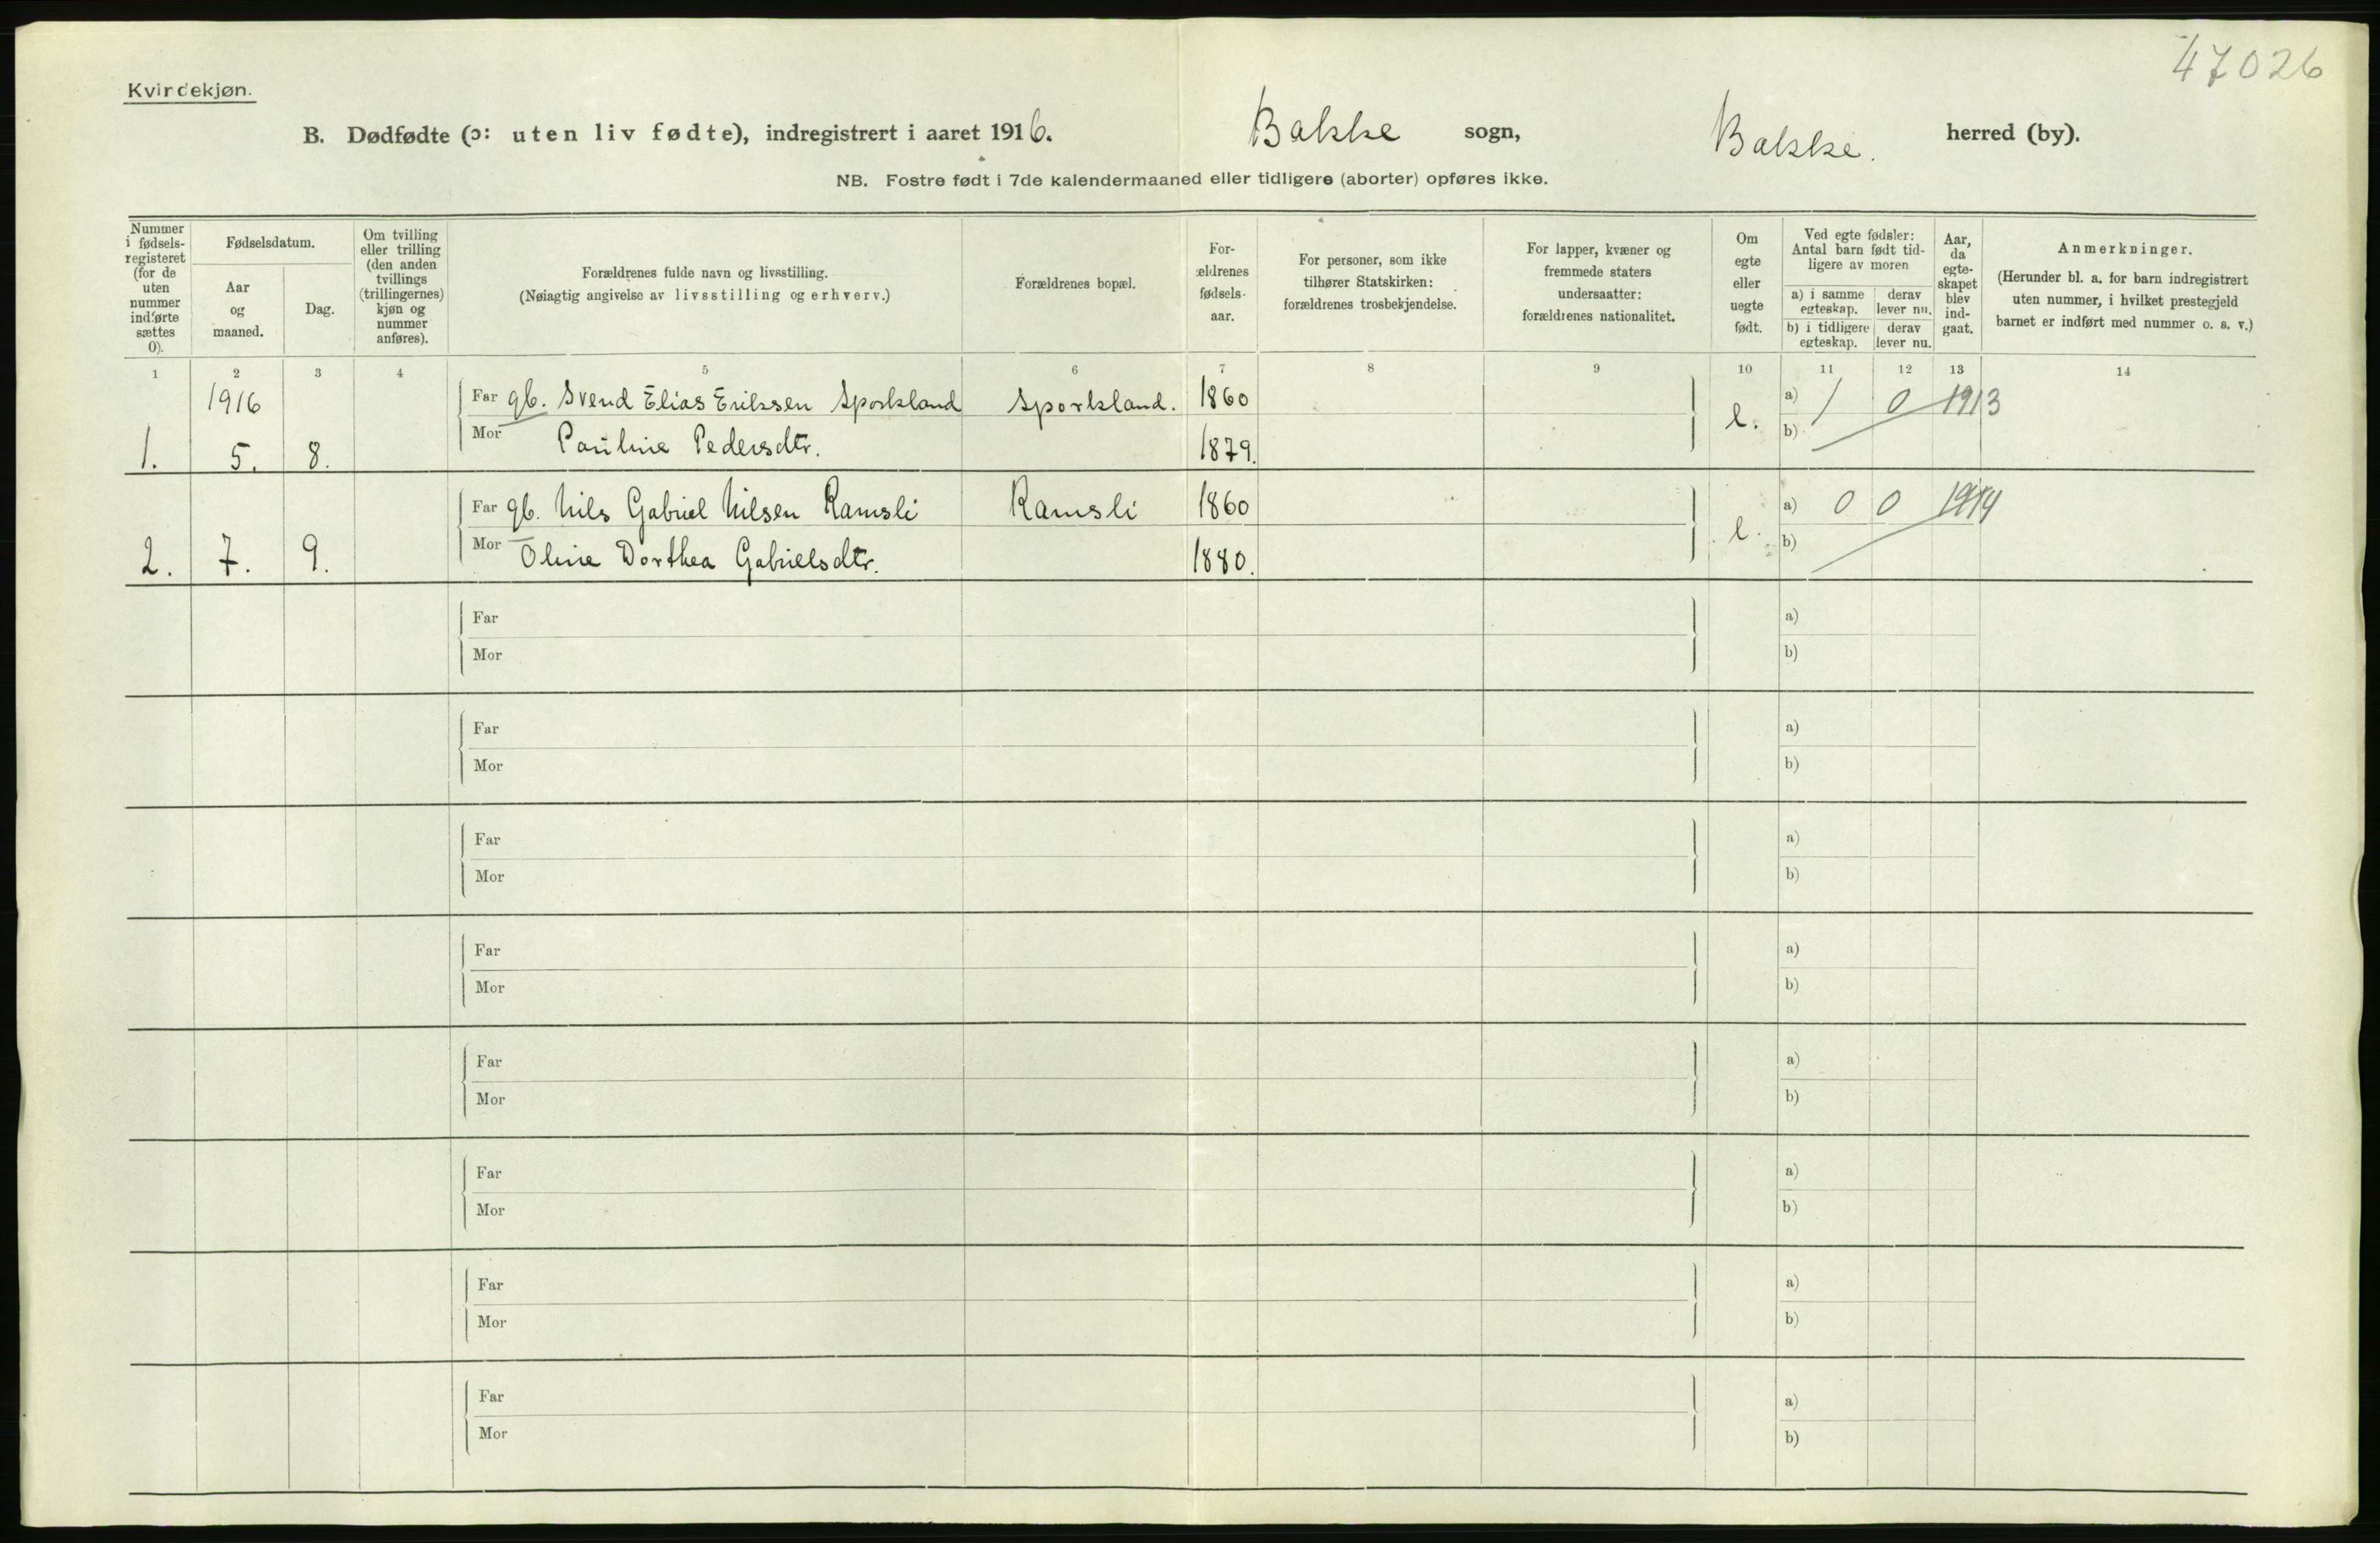 47026
Kvindekjøn.
B. Dødfødte (ɔ: uten liv fødte), indregistrert i aaret 1916. Bakke sogn, Bakke. herred (by).
NB. Fostre født i 7de kalendermaaned eller tidligere (aborter) opføres ikke.
Nummer i fødselsregisteret (for de uten nummer indførte sættes 0).
Fødselsdatum.
Aar og maaned.
Dag.
Om tvilling eller trilling (den anden tvillings (trillingernes) kjøn og nummer anføres).
Forældrenes fulde navn og livsstilling.
(Nøiagtig angivelse av livsstilling og erhverv.)
Forældrenes bopæl.
Forældrenes fødselsaar.
For personer, som ikke tilhører Statskirken: forældrenes trosbekjendelse.
For lapper, kvæner og fremmede staters undersaatter: forældrenes nationalitet.
Om egte eller uegte født.
Ved egte fødsler: Antal barn født tidligere av moren
a) i samme egteskap. derav lever nu.
b) i tidligere egteskap. derav lever nu.
Aar, da egteskapet blev indgaat.
Anmerkninger.
(Herunder bl. a. for barn indregistrert uten nummer, i hvilket prestegjeld barnet er indført med nummer o. s. v.)
1 2 3 4 5 6 7 8 9 10 11 12 13 14
1916 Far gb. Svend Elias Eriksen Sporkland Sporkland. 1860 e. a) 1 0 1913
1. 5. 8. Mor Pauline Pedersdtr. 1879. b)
Far gb. Nils Gabriel Nilsen Ramsli Ramsli 1860 e. a) 0 0 1914
2. 7. 9. Mor Oline Dorthea Gabrielsdtr. 1880. b)
Far a)
Mor b)
Far a)
Mor b)
Far a)
Mor b)
Far a)
Mor b)
Far a)
Mor b)
Far a)
Mor b)
Far a)
Mor b)
Far a)
Mor b)